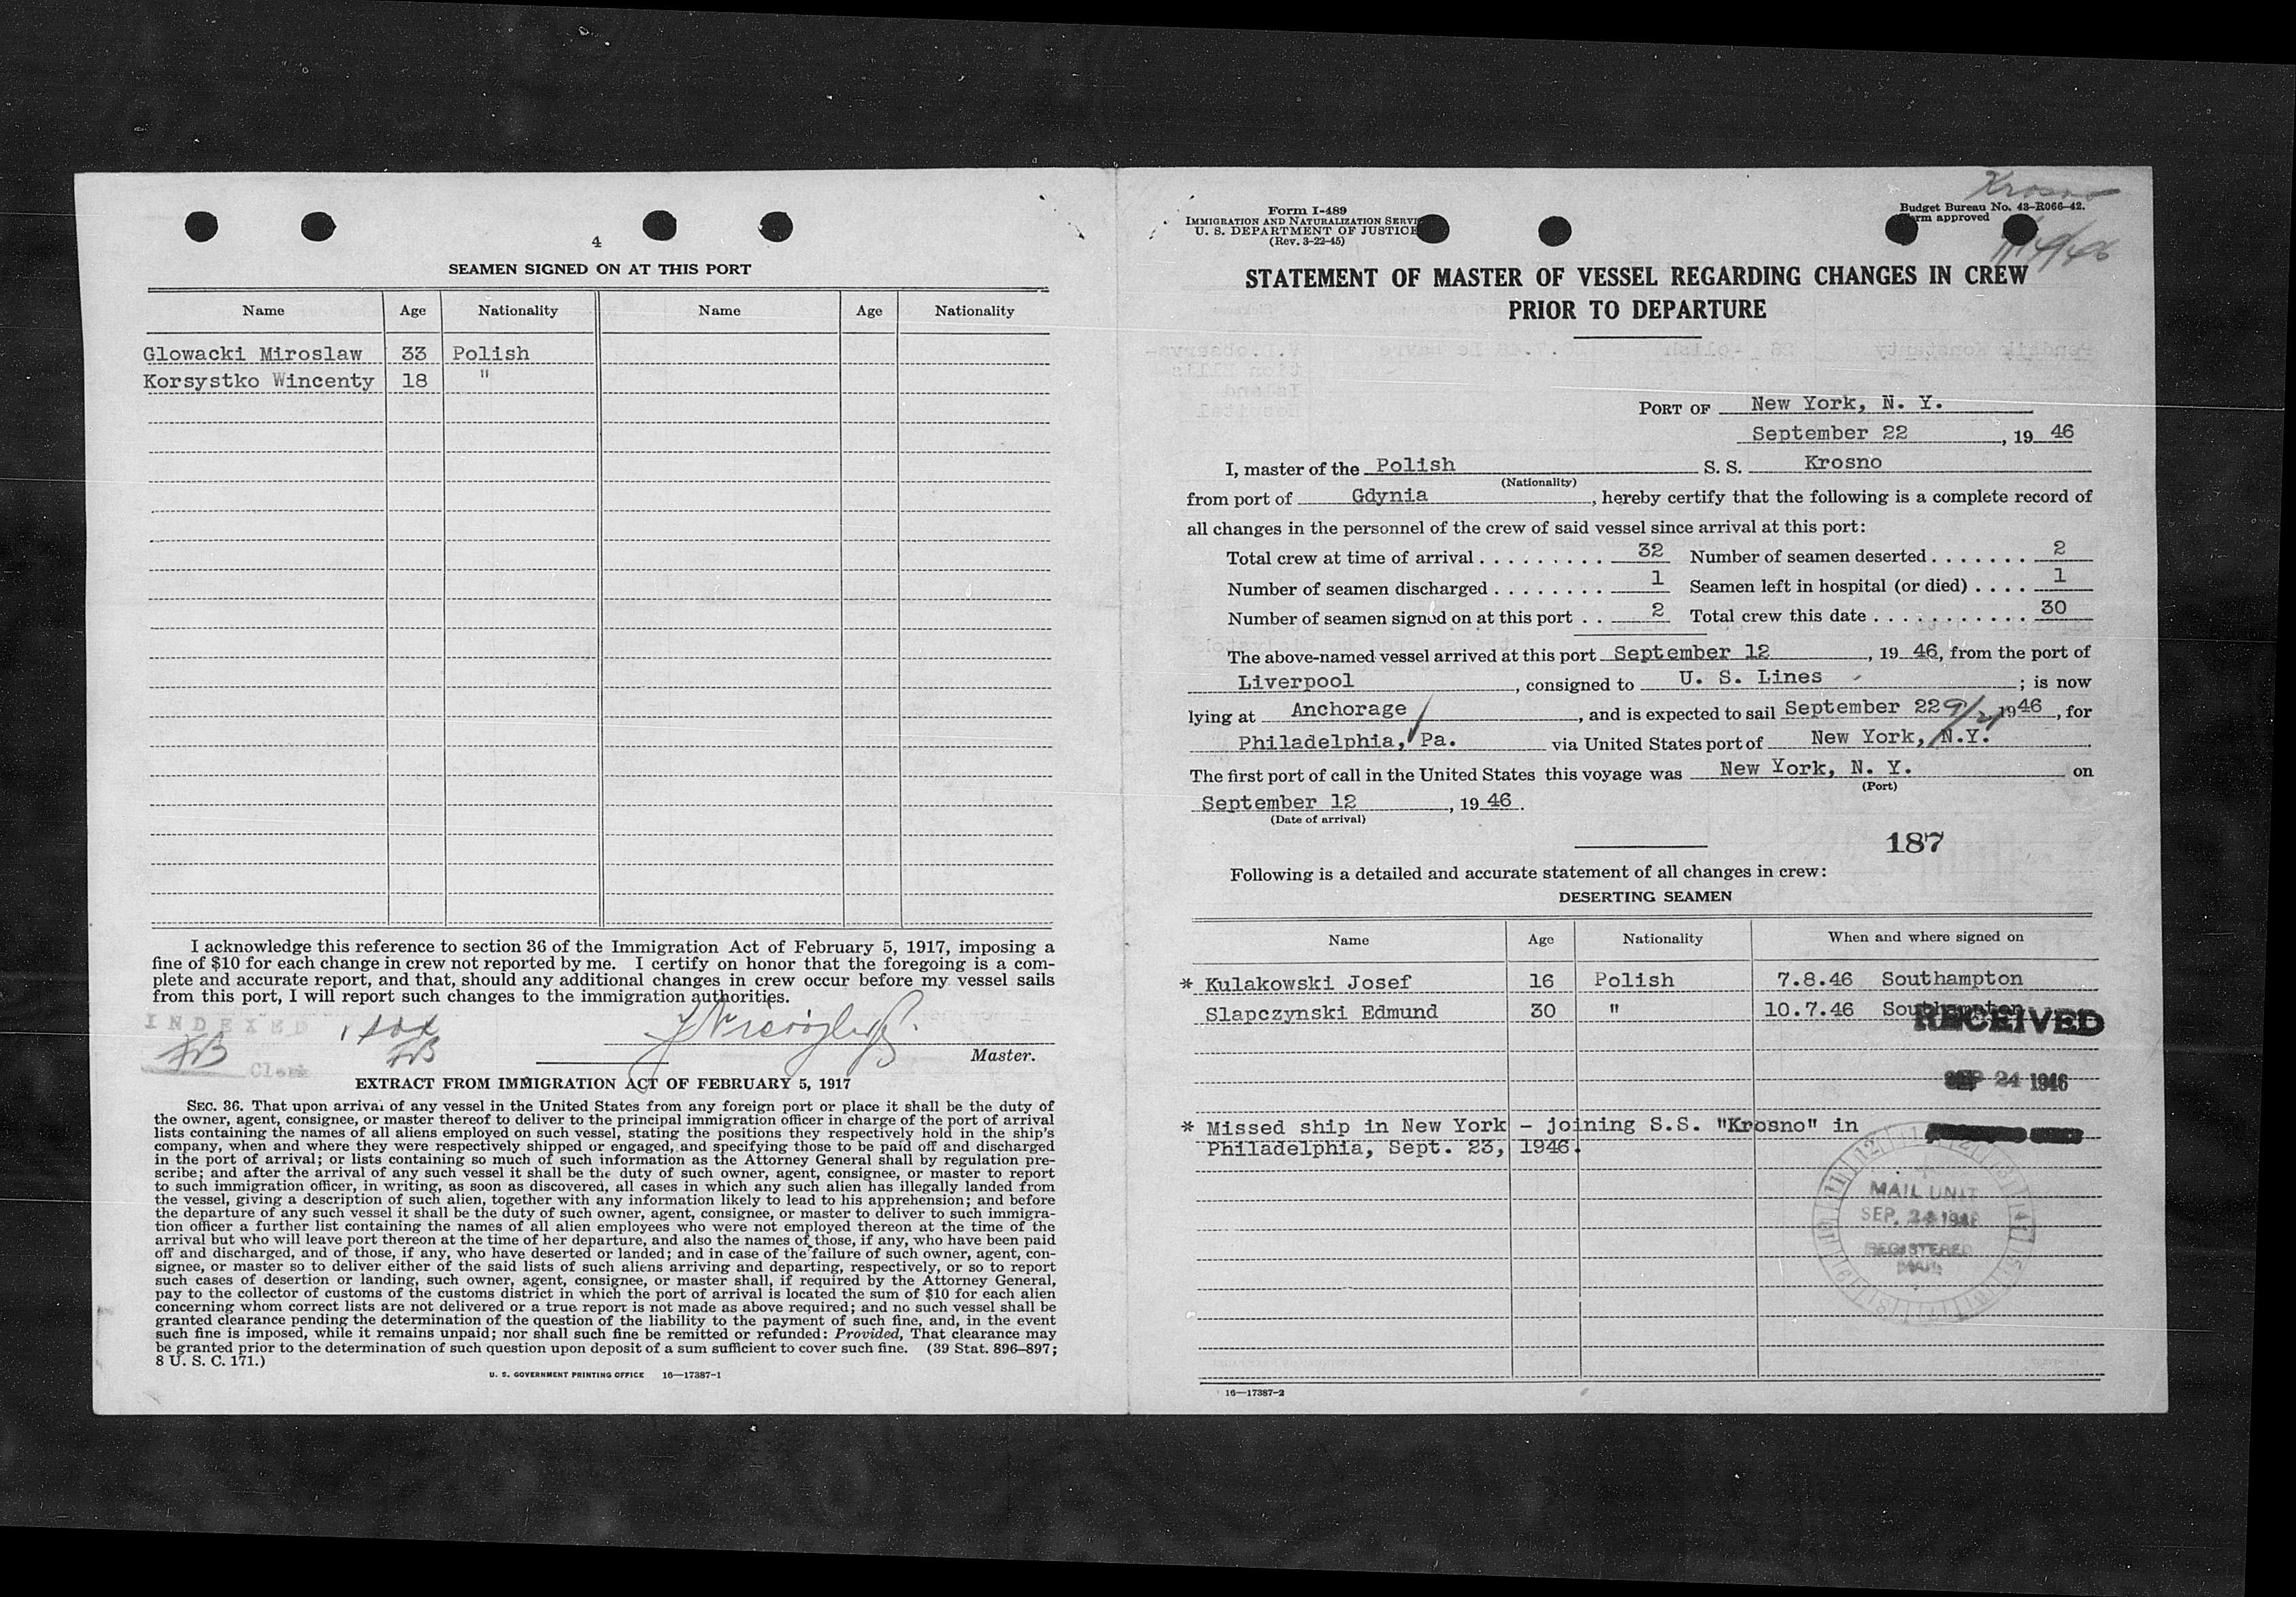 4
SEAMEN SIGNED ON AT THIS PORT
Name Age Nationality Name Age Nationality
Glowacki Miroslaw 33 Polish
Korsystko Wincenty 18 "
I acknowledge this reference to section 36 of the Immigration Act of February 5, 1917, imposing a
fine of $10 for each change in crew not reported by me. I certify on honor that the foregoing is a com-
plete and accurate report, and that, should any additional changes in crew occur before my vessel sails
from this port, I will report such changes to the immigration authorities.
INDEXED
Clerk
Master.
EXTRACT FROM IMMIGRATION ACT OF FEBRUARY 5, 1917
SEC. 36. That upon arrival of any vessel in the United States from any foreign port or place it shall be the duty of
the owner, agent, consignee, or master thereof to deliver to the principal immigration officer in charge of the port of arrival
lists containing the names of all aliens employed on such vessel, stating the positions they respectively hold in the ship's
company, when and where they were respectively shipped or engaged, and specifying those to be paid off and discharged
in the port of arrival; or lists containing so much of such information as the Attorney General shall by regulation pre-
scribe; and after the arrival of any such vessel it shall be the duty of such owner, agent, consignee, or master to report
to such immigration officer, in writing, as soon as discovered, all cases in which any such alien has illegally landed from
the vessel, giving a description of such alien, together with any information likely to lead to his apprehension; and before
the departure of any such vessel it shall be the duty of such owner, agent, consignee, or master to deliver to such immigra-
tion officer a further list containing the names of all alien employees who were not employed thereon at the time of the
arrival but who will leave port thereon at the time of her departure, and also the names of those, if any, who have been paid
off and discharged, and of those, if any, who have deserted or landed; and in case of the failure of such owner, agent, con-
signee, or master so to deliver either of the said lists of such aliens arriving and departing, respectively, or so to report
such cases of desertion or landing, such owner, agent, consignee, or master shall, if required by the Attorney General,
pay to the collector of customs of the customs district in which the port of arrival is located the sum of $10 for each alien
concerning whom correct lists are not delivered or a true report is not made as above required; and no such vessel shall be
granted clearance pending the determination of the question of the liability to the payment of such fine, and, in the event
such fine is imposed, while it remains unpaid; nor shall such fine be remitted or refunded: Provided, That clearance may
be granted prior to the determination of such question upon deposit of a sum sufficient to cover such fine. (39 Stat. 896–897;
8 U. S. C. 171.)
U. S. GOVERNMENT PRINTING OFFICE 16—17387-1
Krosno
Form I-489
IMMIGRATION AND NATURALIZATION SERVI
U. S. DEPARTMENT OF JUSTICE
(Rev. 3-22-45)
Budget Bureau No. 43-R066-42.
rm approved
STATEMENT OF MASTER OF VESSEL REGARDING CHANGES IN CREW
PRIOR TO DEPARTURE
PORT OF New York, N. Y.
September 22, 19 46
I, master of the Polish S. S. Krosno
(Nationality)
from port of Gdynia, hereby certify that the following is a complete record of
all changes in the personnel of the crew of said vessel since arrival at this port:
Total crew at time of arrival . . . . . . . . . . 32 Number of seamen deserted . . . . . . . 2
Number of seamen discharged . . . . . . . . 1 Seamen left in hospital (or died) . . . . 1
Number of seamen signed on at this port . . 2 Total crew this date . . . . . . . . . . . 30
The above-named vessel arrived at this port September 12, 19 46, from the port of
Liverpool, consigned to U. S. Lines; is now
lying at Anchorage, and is expected to sail September 22 9/21 19 46, for
Philadelphia, Pa. via United States port of New York, N.Y.
The first port of call in the United States this voyage was New York, N. Y. on
(Port)
September 12, 19 46.
(Date of arrival)
187
Following is a detailed and accurate statement of all changes in crew:
DESERTING SEAMEN
Name Age Nationality When and where signed on
* Kulakowski Josef 16 Polish 7.8.46 Southampton
Slapczynski Edmund 30 " 10.7.46 Southampton
RECEIVED
SEP 24 1946
* Missed ship in New York – joining S.S. "Krosno" in
Philadelphia, Sept. 23, 1946.
MAIL UNIT
SEP. 24 1946
REGISTERED
MAIL
16—17387-2